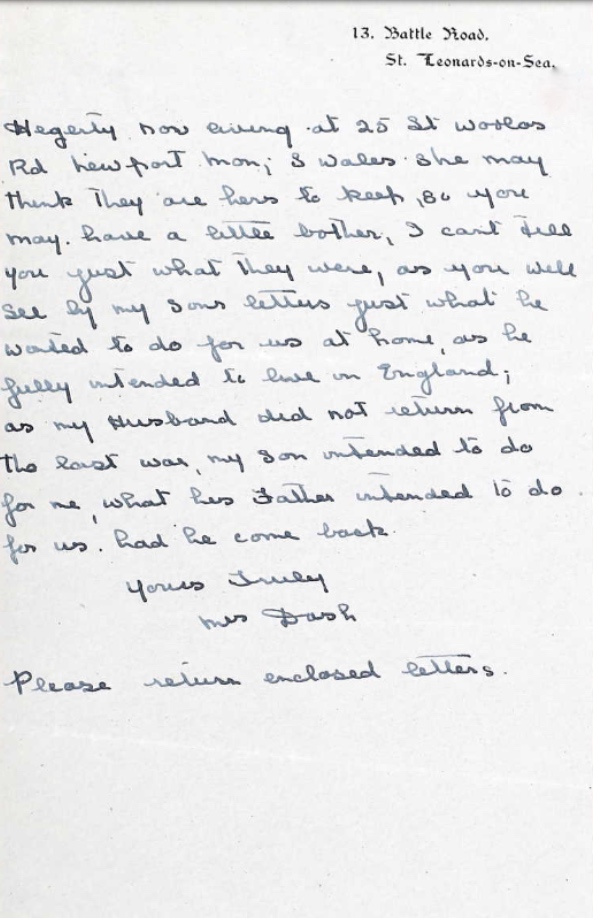 13. Battle Road.
St. Leonards-on-Sea.
Hegerty now living at 25 St Woolos
Rd Newport Mon; S Wales. She may
think they are hers to keep, so you
may. have a little bother, I can't tell
you just what they were, as you will
see by my sons letters just what he
wanted to do for us at home, as he
fully intended to live in England;
as my Husband did not return from
the last war, my son intended to do
for me, what his Father intended to do.
for us. had he come back.
Yours Truly
Mrs Dash
Please return enclosed letters.